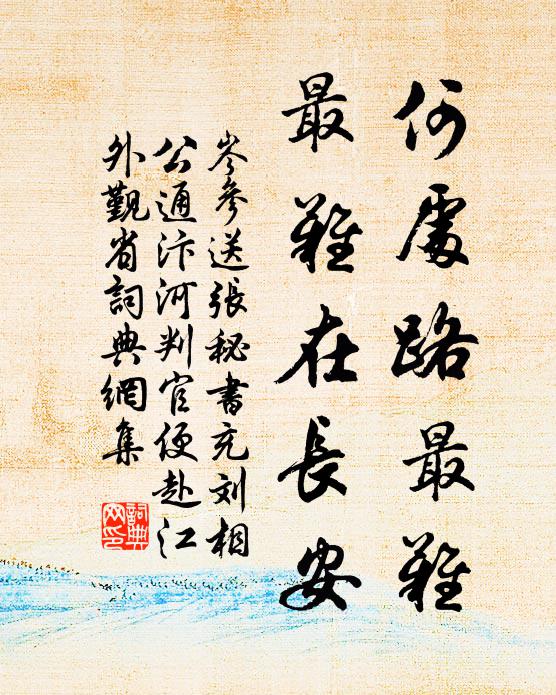 何處路最難
最難在長安
岑參送張秘書充刘相
公通汴河判官便赴江
外觀省詞典網集
詞典網印